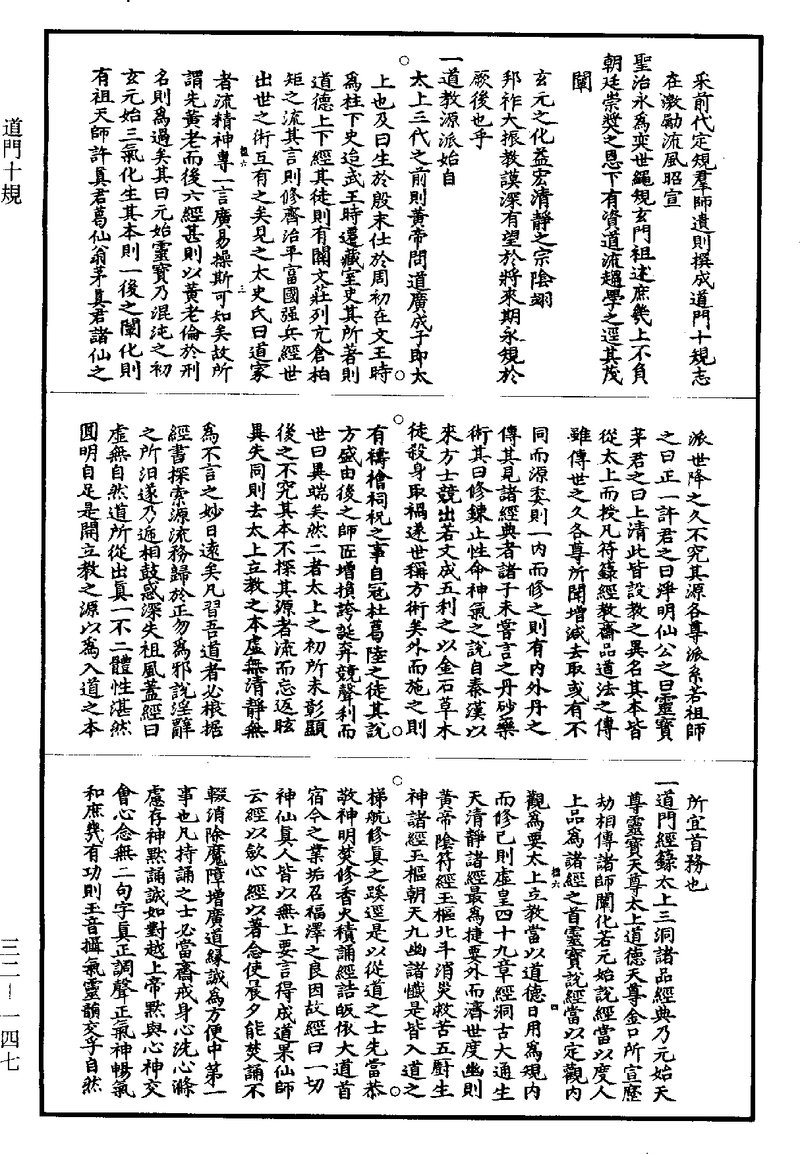 采前代定規羣師遺則撰成道門十規志
在激勵流風昭宣
聖治永爲奕世繩規玄門祖述庶幾上不負
朝廷崇奬之恩下有資道流趨學之逕其茂
闡
玄元之化益宏清靜之宗陰翊
邦祚大振教謨深有望於將來期永規於
厥後也乎
一道教源派始自
太上三代之前則黃帝問道廣成子即太
上也及曰生於殷末仕於周初在文王時
爲柱下史迨武王時遷藏室史其所著則
道德上下經其徒則有關文莊列亢倉柏
矩之流其言則修齊治平富國强兵經世
出世之術互有之矣見之太史氏曰道家
者流精神專一言廣易操斯可知矣故所
謂先黃老而後六經甚則以黃老倫於刑
名則爲過矣其曰元始靈寶乃混沌之初
玄元始三氣化生其本則一後之闡化則
有祖天師許眞君葛仙翁茅眞君諸仙之
派世降之久不究其源各尊派系若祖師
之曰正一許君之曰淨明仙公之曰靈寶
茅君之曰上清此皆設教之異名其本皆
從太上而授凡符籙經教齋品道法之傳
雖傳世之久各尊所聞增減去取或有不
同而源委則一内而修之則有内外丹之
傳其見諸經典者諸子未甞言之丹砂藥
術其曰修鍊止性命神氣之說自秦漢以
來方士競出若文成五利之以金石草木
徒殺身取禍遂世稱方術矣外而施之則
有禱禬祠祝之事自寇杜葛陸之徒其說
方盛由後之師匠增損誇誕奔競聲利而
世曰異端矣然二者太上之初所未彰顯
後之不究其本不探其源者流而忘返眩
異失同則去太上立教之本虛無清靜無
爲不言之妙日遠矣凡習吾道者必根據
經書探索源流務歸於正勿爲邪說淫辭
之所汨遂乃遞相鼓惑深失祖風蓋經曰
虛無自然道所從出眞一不二體性湛然
圓明自足是開立教之源以爲入道之本
所宜首務也
一道門經籙太上三洞諸品經典乃元始天
尊靈寶天尊太上道德天尊金口所宣歷
劫相傳諸師闡化若元始說經當以度人
上品爲諸經之首靈寶說經當以定觀内
觀爲要太上立教當以道德日用爲規内
而修己則虛皇四十九章經洞古大通生
天清靜諸經最爲捷要外而濟世度幽則
黃帝陰符經玉樞北斗消災救苦五厨生
神諸經玉樞朝天九幽諸懺是皆入道之
梯航修眞之蹊逕是以從道之士先當恭
敬神明焚修香火積誦經誥皈依大道首
宿今之業垢召福澤之良因故經曰一切
神仙眞人皆以無上要言得成道果仙師
云經以斂心經以著念使晨夕能焚誦不
輟消除魔障增廣道緣誠爲方便中第一
事也凡持誦之士必當齋戒身心洗心滌
慮存神默誦誠如對越上帝默與心神交
會心念無二句字眞正調聲正氣神暢氣
和庶幾有功則玉音攝氣靈韻交孚自然
道門十規
三二－一四七